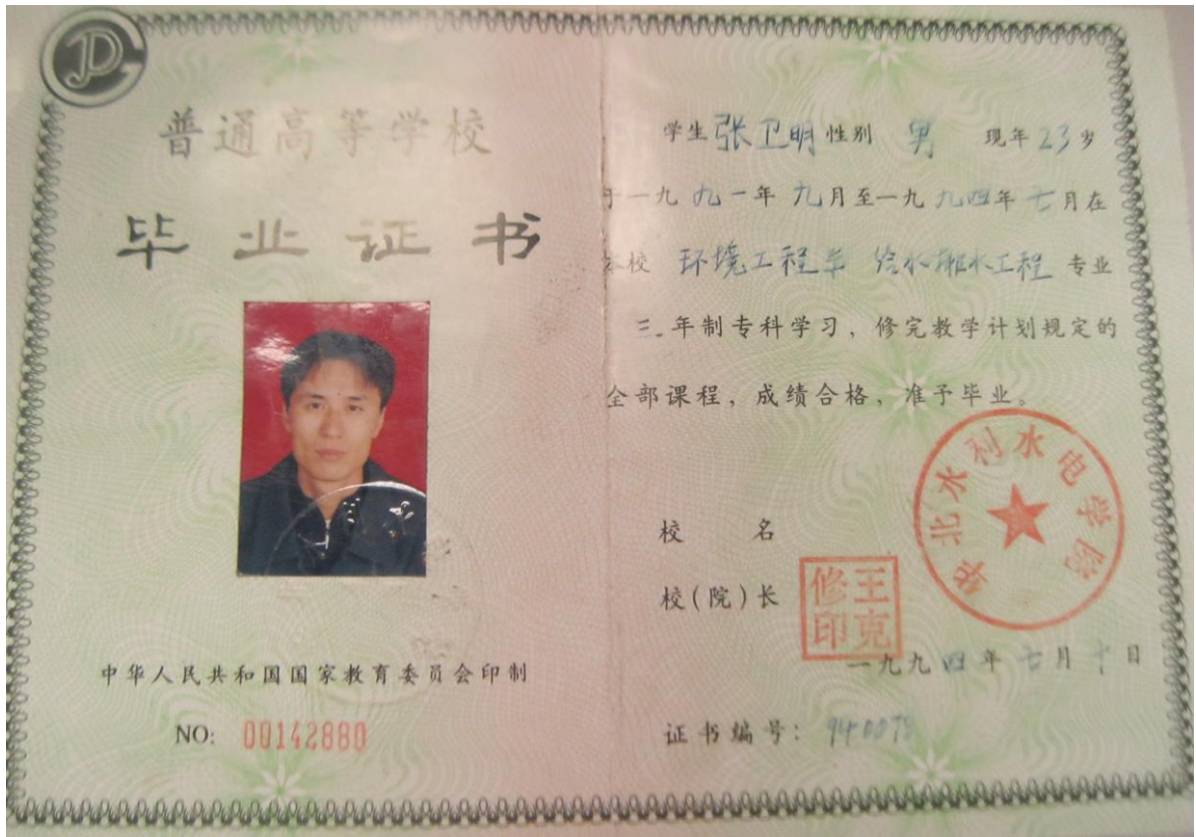 普通高等学校
毕业证书
中华人民共和国国家教育委员会印制
NO: 00142880
学生 张卫明 性别 男 现年 23 岁
于一九九一年九月至一九九四年七月在
本校 环境工程系 给水排水工程 专业
三年制专科学习，修完教学计划规定的
全部课程，成绩合格，准予毕业。
华北水利水电学院
校名
校(院)长
王克修印
一九九四年七月十日
证书编号：